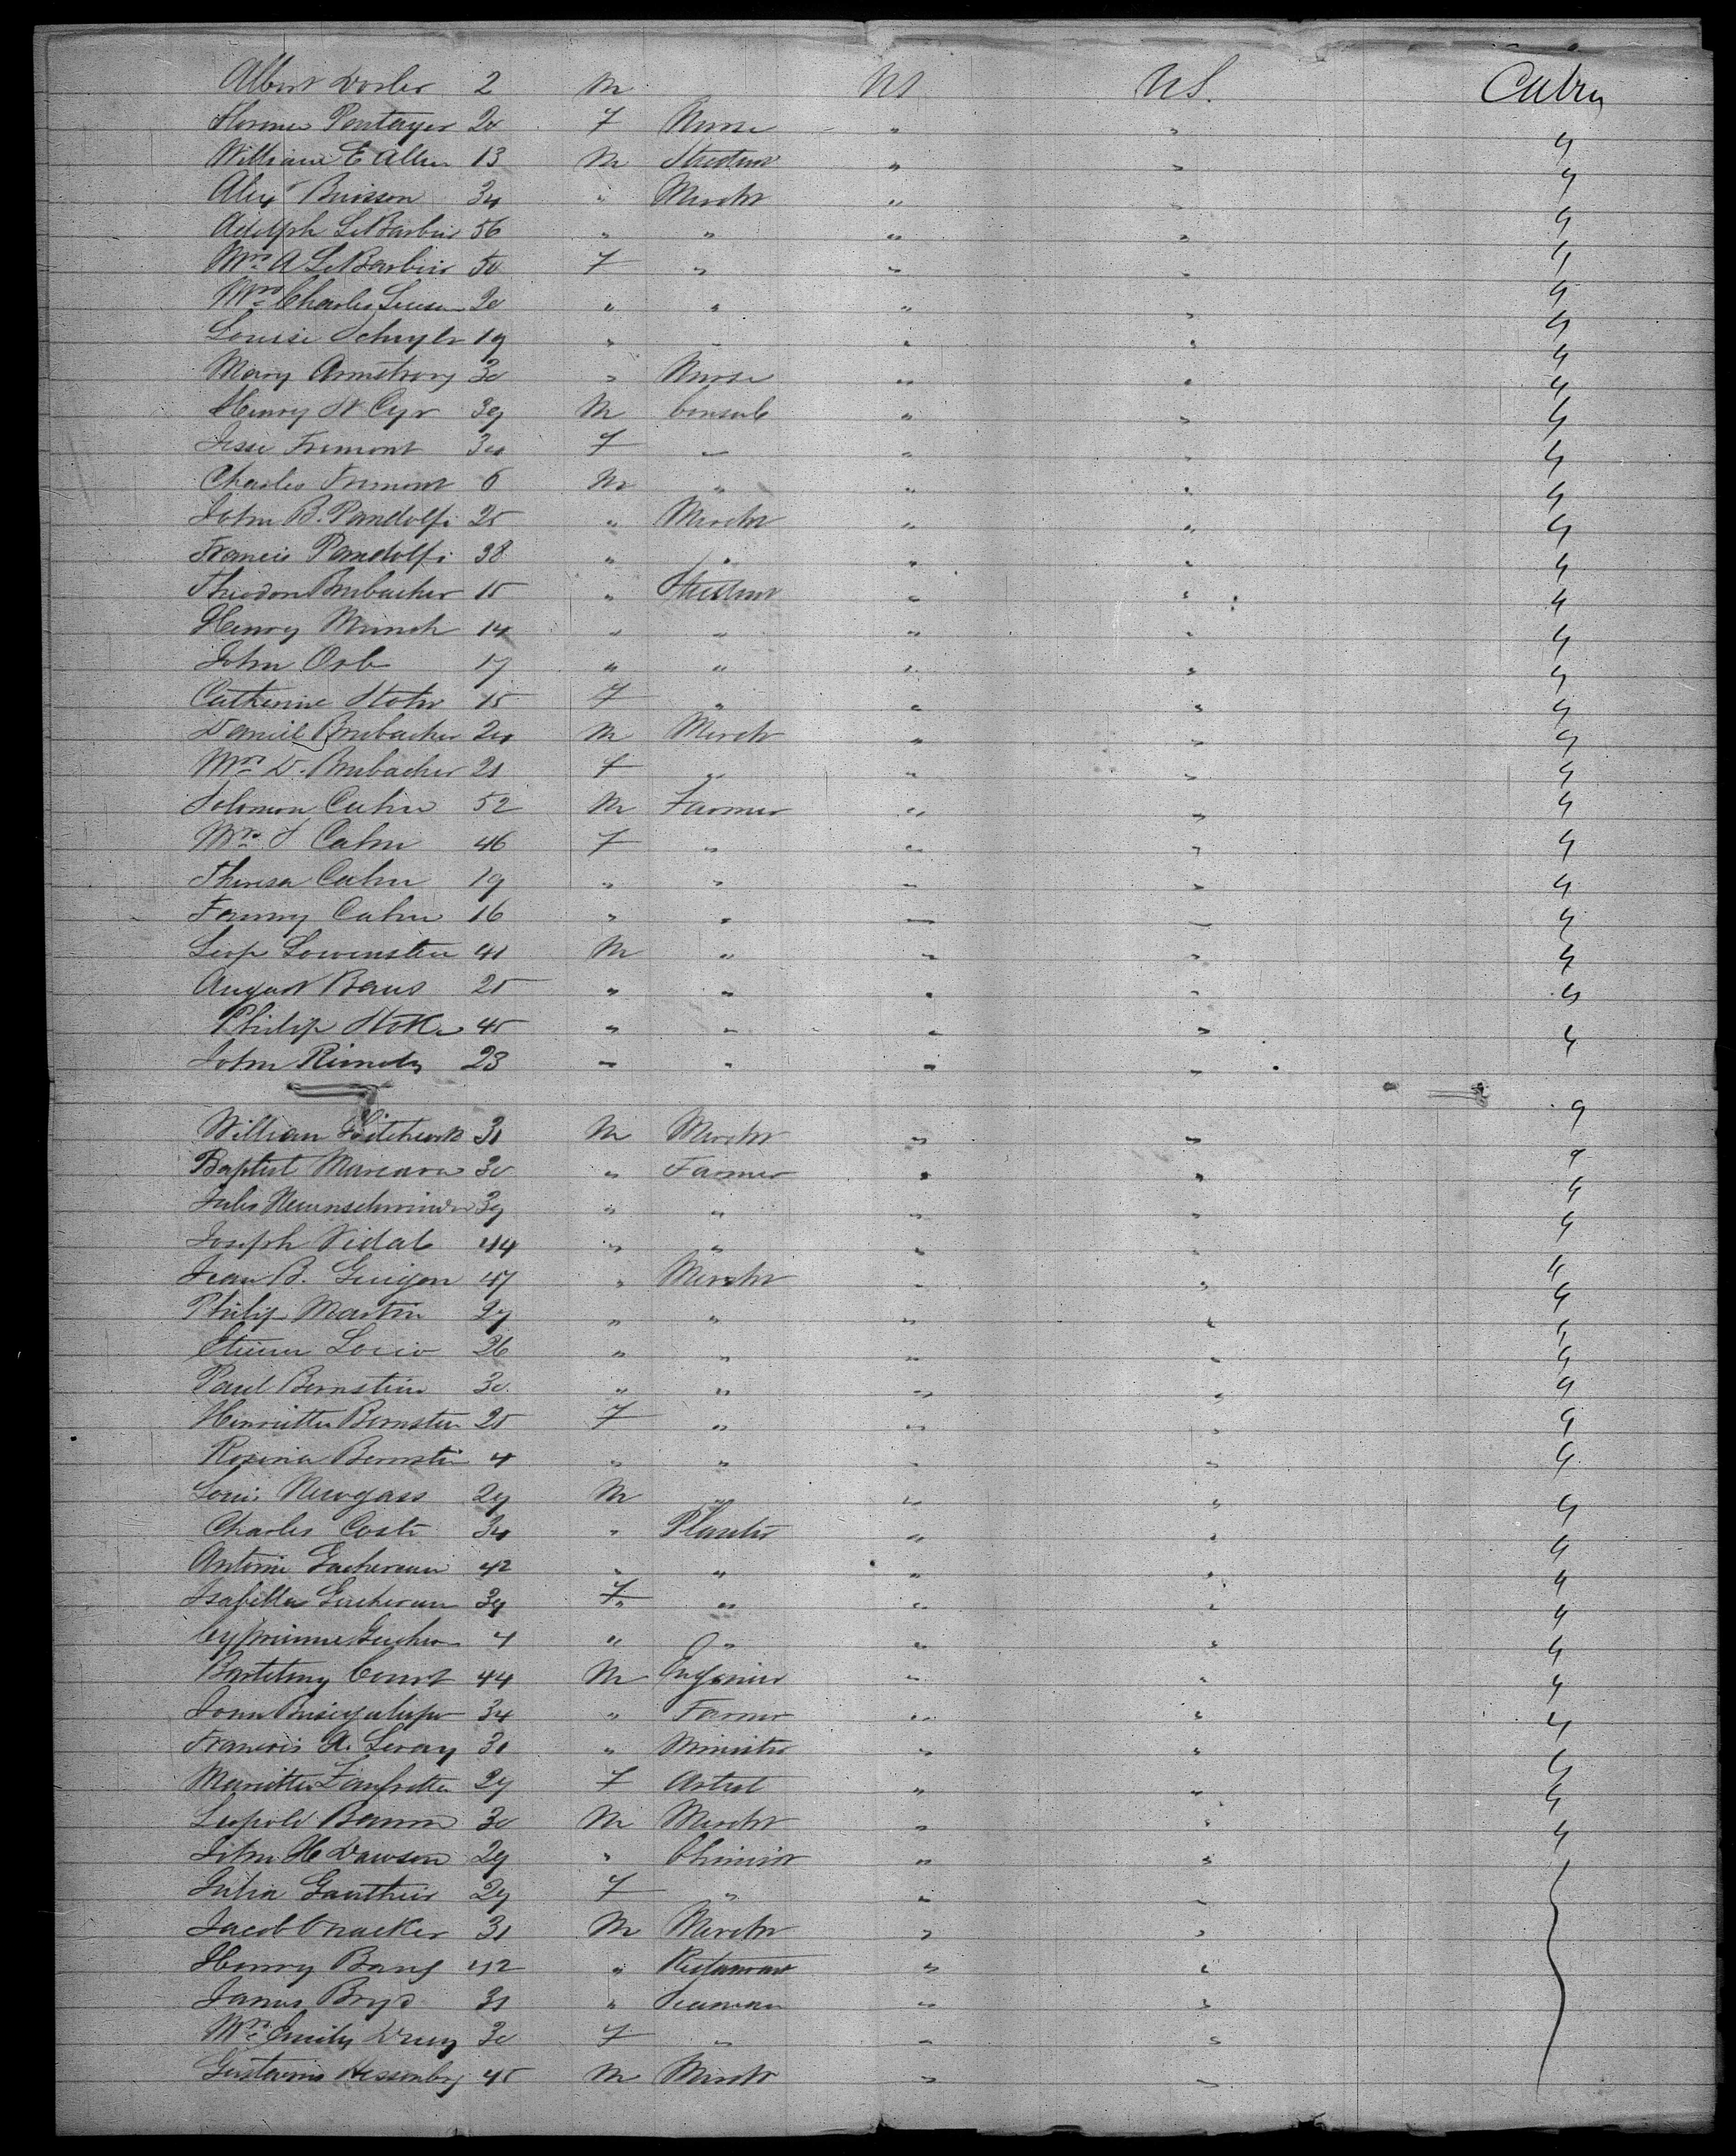 Albert Dosler 2 M US U.S. Cabin
Florence Pentayer 20 F Nurse " " "
William E Allen 13 M Student " " "
Alex Buisson 34 " Mercht " " "
Adolph LeBarbier 56 " " " " "
Mrs A LeBarbier 50 F " " " "
Mrs Charles 20 " " " " "
Louise Schuyler 19 " " " " "
Mary Armstrong 30 " Nurse " " "
Henry St Cyr 39 M Consul " " "
Jesse Fremont 30 F " " " "
Charles Fremont 6 M " " " "
John B. Pandolfi 25 " Mercht " " "
Francis Pandolfi 38 " " " " "
Theodore Brubacher 15 " Student " " "
Henry Munch 14 " " " " "
John Orb 17 " " " " "
Catherine Stohr 15 F " " " "
Daniel Brubacher 24 M Mercht " " "
Mrs D. Brubacher 21 F " " " "
Solomon Cahn 52 M Farmer " " "
Mrs S Cahn 46 F " " " "
Theresa Cahn 19 " " " " "
Fanny Cahn 16 " " " " "
Leop Lowenstein 41 M " " " "
August Baus 25 " " " " "
Philip 45 " " " " "
John 23 " " " "
William Hitchcock 31 M Mercht " " "
Baptist 30 " Farmer " " "
Jules Neuenschwinder 39 " " " " "
Joseph Vidal 44 " " " " "
Jean B. Guigon 47 " Mercht " " "
Philip Martin 27 " " " " "
Etienne 26 " " " " "
Paul Bernstein 30 " " " " "
Henrietta Bernstein 25 F " " " "
Rosina Bernstein 4 " " " " "
Louis Newgass 29 M " " " "
Charles Coste 34 " Planter " " "
Antoine Gachereau 42 " " " " "
Isabella Gachereau 34 F " " " "
Cyprienne 4 " " " " "
Bartelmy Const 44 M Engenier " " "
John 34 " Farmer " " "
Francois A. Leray 31 " Minister " " "
Marietta Zanfretta 27 F Artist " " "
Leopold Baum 30 M Mercht " " "
John H Dawson 29 " Chimist " "
Julia Gauthier 29 F " " "
Jacob Cnacker 31 M Mercht " "
Henry Bang 42 " Restaurant " "
James Boyd 31 " Seaman " "
Mrs Emily 30 F " " "
Gustavus Hessenberg 45 M Mercht " "